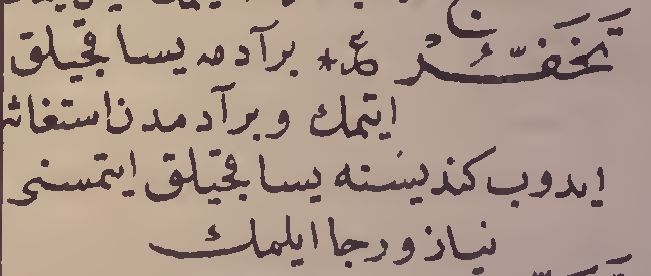 تَخَفُّرْ ع * بر آدمه يساقجيلق
ايتمك و بر آدمدن استغاثه
ايدوب كنديسنه يساقجيلق ايتمسنى
نياز و رجا ايلمك